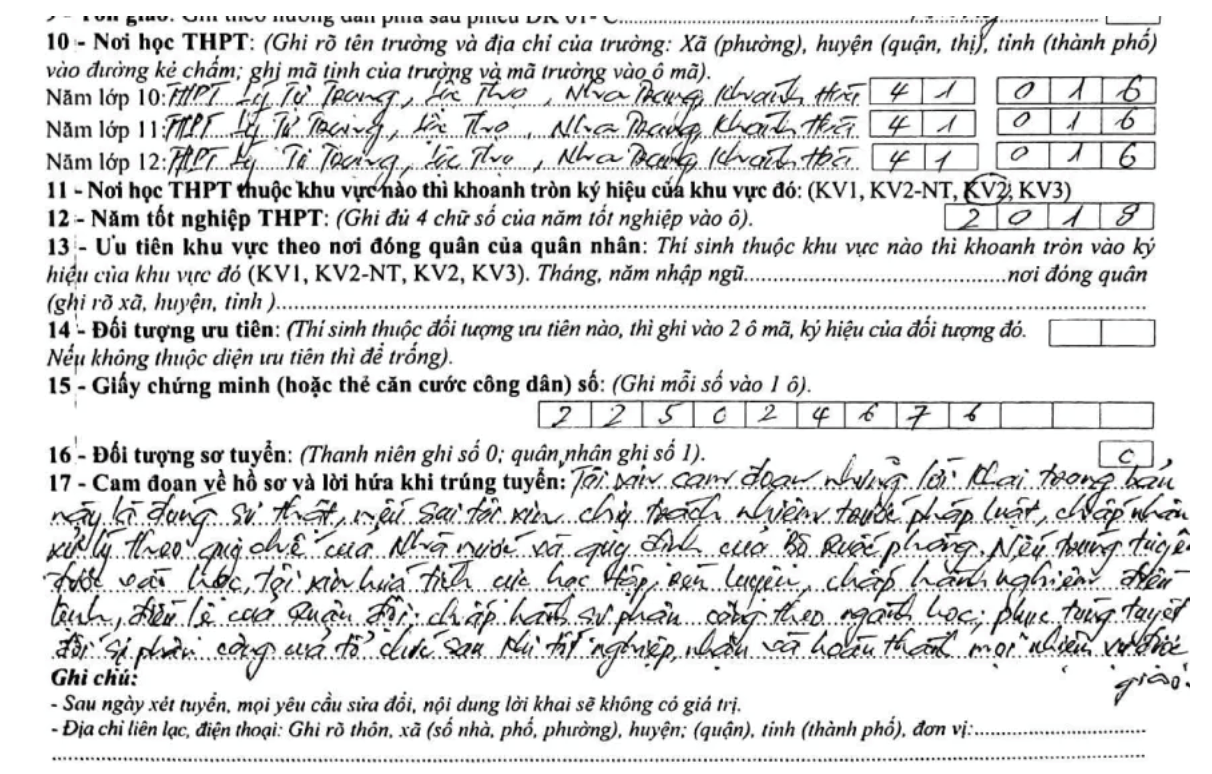 9 - Tôn giáo: Ghi theo hướng dẫn phía sau phiếu ĐK 01- C
10 - Nơi học THPT: (Ghi rõ tên trường và địa chỉ của trường: Xã (phường), huyện (quận, thị), tỉnh (thành phố)
vào đường kẻ chấm; ghi mã tỉnh của trường và mã trường vào ô mã).
Năm lớp 10: THPT Lý Tự Trọng, Lộc Thọ, Nha Trang, Khánh Hòa 4 1 0 1 6
Năm lớp 11: THPT Lý Tự Trọng, Lộc Thọ, Nha Trang, Khánh Hòa 4 1 0 1 6
Năm lớp 12: THPT Lý Tự Trọng, Lộc Thọ, Nha Trang, Khánh Hòa 4 1 0 1 6
11 - Nơi học THPT thuộc khu vực nào thì khoanh tròn ký hiệu của khu vực đó: (KV1, KV2-NT, KV2, KV3)
12 - Năm tốt nghiệp THPT: (Ghi đủ 4 chữ số của năm tốt nghiệp vào ô). 2 0 1 8
13 - Ưu tiên khu vực theo nơi đóng quân của quân nhân: Thí sinh thuộc khu vực nào thì khoanh tròn vào ký
hiệu của khu vực đó (KV1, KV2-NT, KV2, KV3). Tháng, năm nhập ngũ nơi đóng quân
(ghi rõ xã, huyện, tỉnh )
14 - Đối tượng ưu tiên: (Thí sinh thuộc đối tượng ưu tiên nào, thì ghi vào 2 ô mã, ký hiệu của đối tượng đó.
Nếu không thuộc diện ưu tiên thì để trống).
15 - Giấy chứng minh (hoặc thẻ căn cước công dân) số: (Ghi mỗi số vào 1 ô).
2 2 5 0 2 4 6 7 6
16 - Đối tượng sơ tuyển: (Thanh niên ghi số 0; quân nhân ghi số 1). 0
17 - Cam đoan về hồ sơ và lời hứa khi trúng tuyển: Tôi xin cam đoan những lời khai trong bản
này là đúng sự thật, nếu sai tôi xin chịu trách nhiệm trước pháp luật, chấp nhận
xử lý theo quy chế của Nhà nước và quy định của Bộ Quốc phòng. Nếu trúng tuyển
được vào học, tôi xin hứa tích cực học tập, rèn luyện, chấp hành nghiêm điều
lệnh, điều lệ của Quân đội; chấp hành sự phân công theo ngành học; phục tùng tuyệt
đối sự phân công của tổ chức sau khi tốt nghiệp, nhận và hoàn thành mọi nhiệm vụ được
giao.
Ghi chú:
- Sau ngày xét tuyển, mọi yêu cầu sửa đổi, nội dung lời khai sẽ không có giá trị.
- Địa chỉ liên lạc, điện thoại: Ghi rõ thôn, xã (số nhà, phố, phường), huyện; (quận), tỉnh (thành phố), đơn vị: